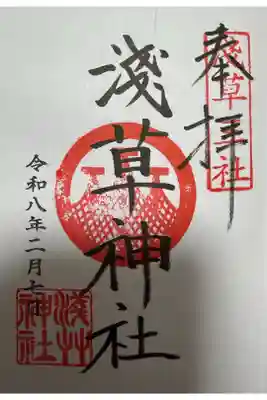 奉拝
淺草社
淺草神社
令和八年二月七日
淺草神社